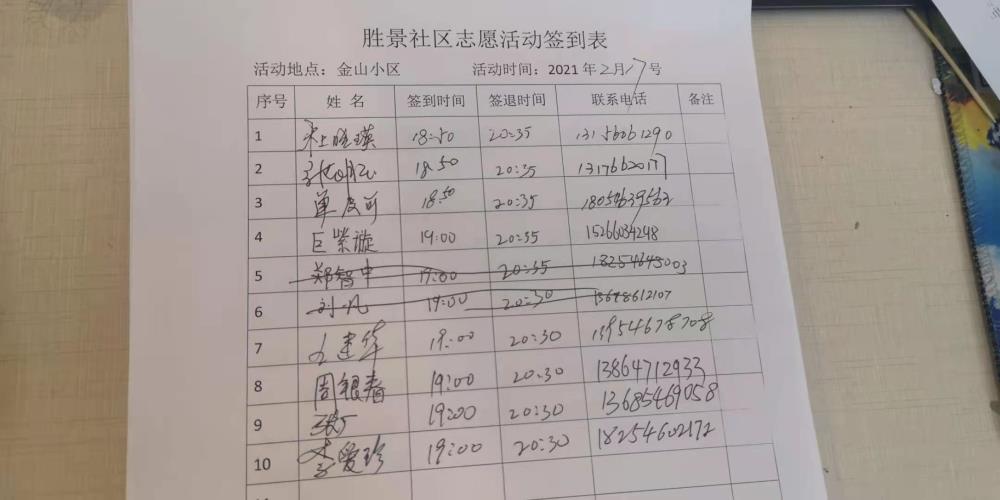 胜景社区志愿活动签到表
活动地点：金山小区 活动时间：2021年2月17号
序号 姓名 签到时间 签退时间 联系电话 备注
1 18:50 20:35 13156061290
2 18:50 20:35 13176620177
3 单皮可 18:50 20:35 18050639563
4 巨紫旋 19:00 20:35 15266034248
5 郑智中 19:00 20:35 18254645003
6 刘凡 19:00 20:30 13678612107
7 建华 19:00 20:30 13954678708
8 周银春 19:00 20:30 13864712933
9 19:00 20:30 13685469058
10 李爱珍 19:00 20:30 18254602172